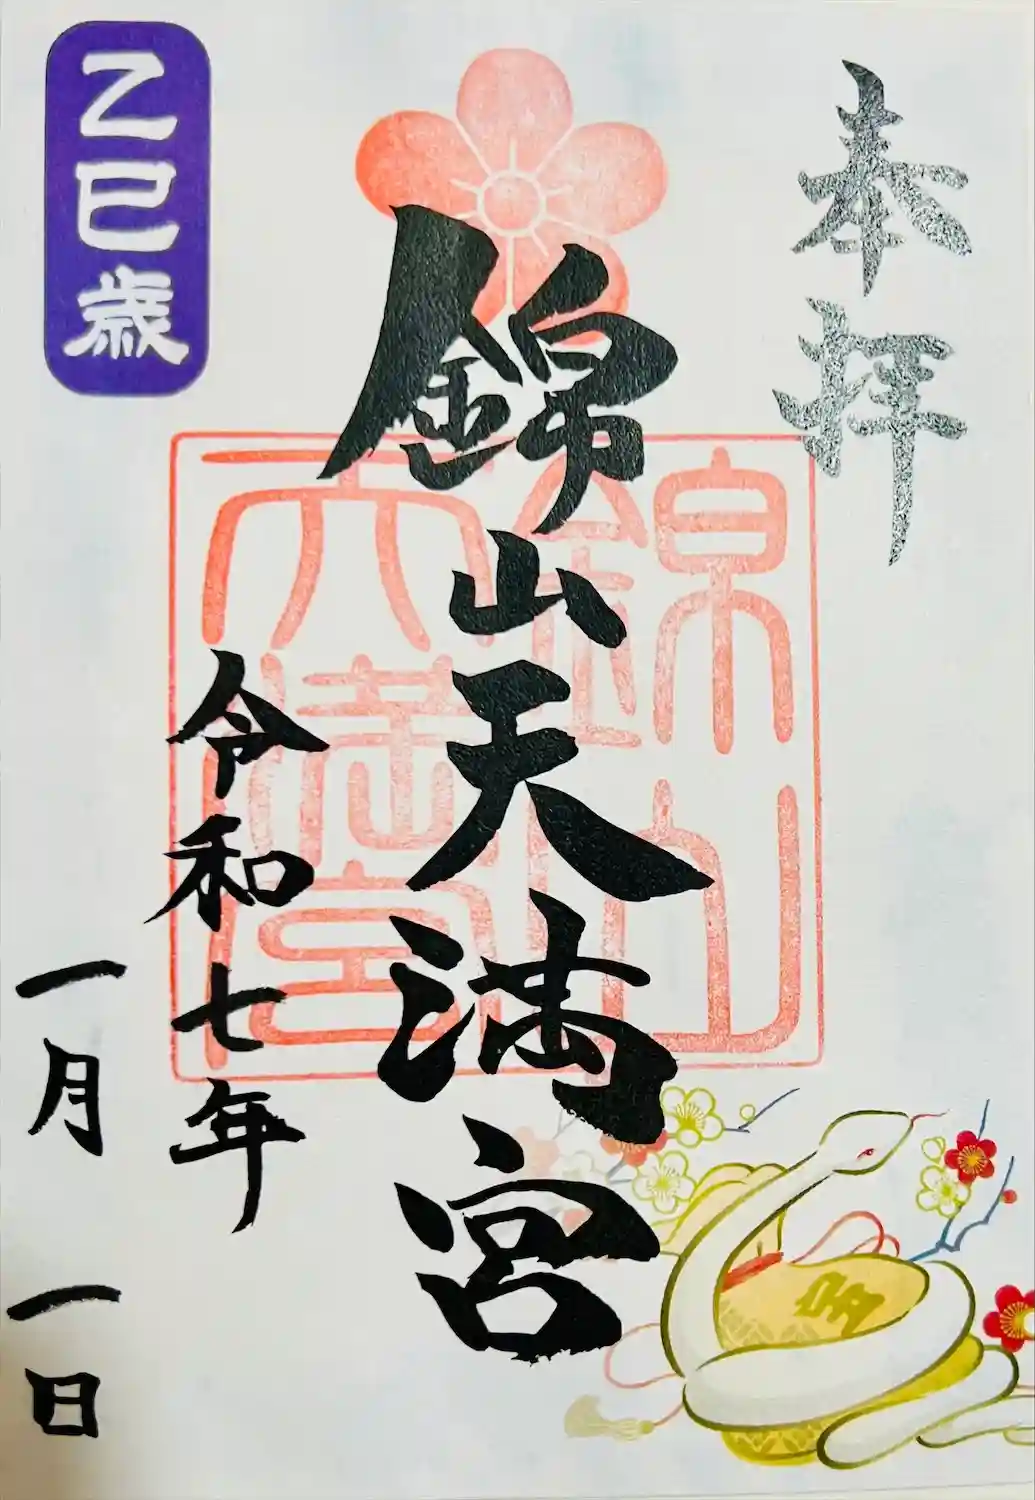 奉拝
錦山天満宮
錦山
天満宮
令和七年
一月一日
乙巳歳
宝